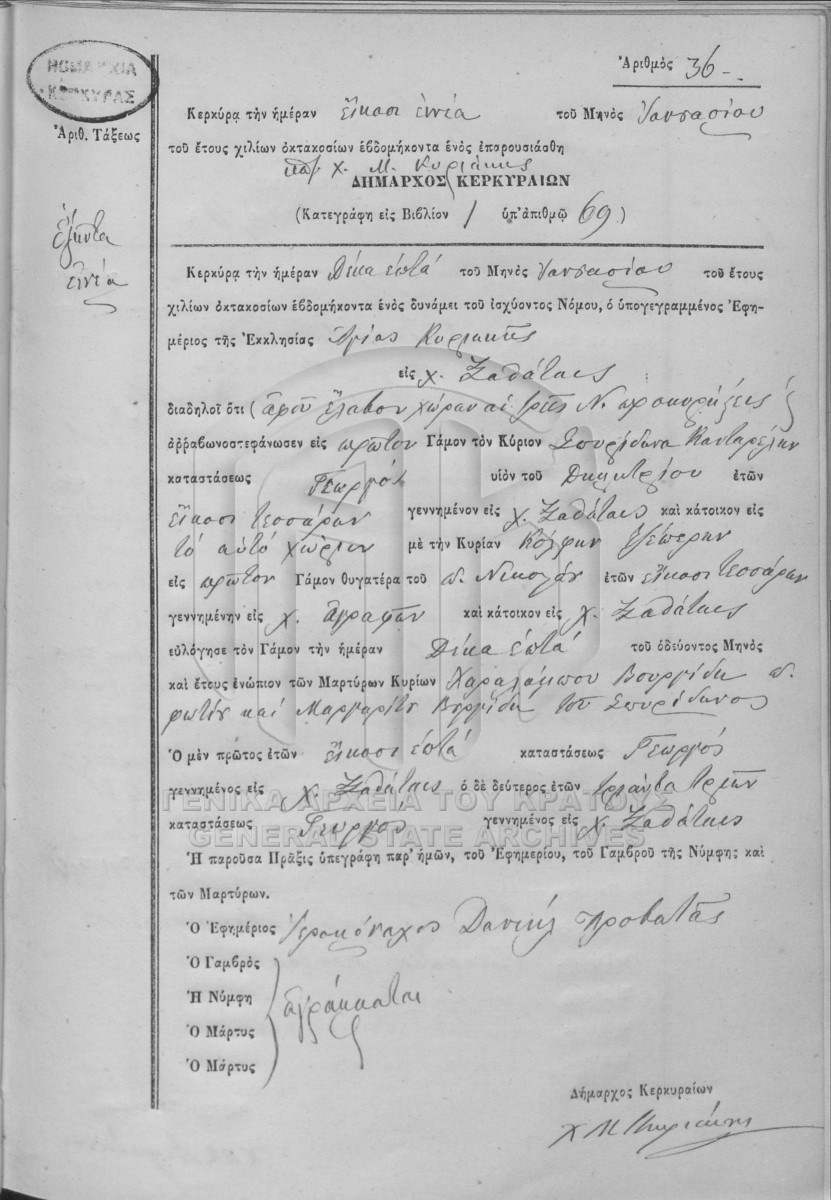 ΝΟΜΑΡΧΙΑ
ΚΕΡΚΥΡΑΣ
Ἀριθμὸς 36
Κερκύρᾳ τὴν ἡμέραν εἴκοσι ἐννέα τοῦ Μηνὸς Ἰανουαρίου
Ἀριθ. Τάξεως
τοῦ ἔτους χιλίων ὀκτακοσίων ἑβδομήκοντα ἑνὸς ἐπαρουσιάσθη
Χ. Μ. Κυριάκης
ΔΗΜΑΡΧΟΣ ΚΕΡΚΥΡΑΙΩΝ
(Κατεγράφη εἰς Βιβλίον 1 ὑπ' ἀριθμῷ 69)
ἑξήντα
ἐννέα
Κερκύρᾳ τὴν ἡμέραν Δέκα ἑπτά τοῦ Μηνὸς Ἰανουαρίου τοῦ ἔτους
χιλίων ὀκτακοσίων ἑβδομήκοντα ἑνὸς δυνάμει τοῦ ἰσχύοντος Νόμου, ὁ ὑπογεγραμμένος Ἐφη-
μέριος τῆς Ἐκκλησίας Ἁγίας Κυριακῆς
εἰς χ.
διαδηλοῖ ὅτι (ἀφοῦ ἔλαβον χώραν αἱ τρεῖς Ν. προκηρύξεις)
ἀῤῥαβωνοστεφάνωσεν εἰς πρῶτον Γάμον τὸν Κύριον Σπυρίδωνα
καταστάσεως Γεωργός υἱὸν τοῦ Δημητρίου ἐτῶν
εἴκοσι τεσσάρων γεννημένον εἰς χ. καὶ κάτοικον εἰς
τὸ αὐτὸ χωρίον μὲ τὴν Κυρίαν
εἰς πρῶτον Γάμον θυγατέρα τοῦ π. Νικολάου ἐτῶν εἴκοσι τεσσάρων
γεννημένην εἰς χ. Ἀγραφῶν καὶ κάτοικον εἰς χ.
εὐλόγησε τὸν Γάμον τὴν ἡμέραν Δέκα ἑπτά τοῦ ὁδεύοντος Μηνὸς
καὶ ἔτους ἐνώπιον τῶν Μαρτύρων Κυρίων Χαραλάμπου
καὶ Μαργαρίτη τοῦ Σπυρίδωνος
Ὁ μὲν πρῶτος ἐτῶν εἴκοσι ἑπτά καταστάσεως Γεωργός
γεννημένος εἰς χ. ὁ δὲ δεύτερος ἐτῶν τριάντα τριῶν
ΓΕΝΙΚΑ ΑΡΧΕΙΑ ΤΟΥ ΚΡΑΤΟΥΣ
καταστάσεως Γεωργός γεννημένος εἰς χ.
GENERAL STATE ARCHIVES
Ἡ παροῦσα Πρᾶξις ὑπεγράφη παρ' ἡμῶν, τοῦ Ἐφημερίου, τοῦ Γαμβροῦ τῆς Νύμφης καὶ
τῶν Μαρτύρων.
Ὁ Ἐφημέριος Ἱερομόναχος Δανιήλ Προβατᾶς
Ὁ Γαμβρὸς
Ἡ Νύμφη ἀγράμματοι
Ὁ Μάρτυς
Ὁ Μάρτυς
Δήμαρχος Κερκυραίων
Χ Μ Κυριάκης